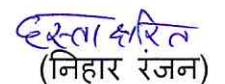 हस्ताक्षरित
(निहार रंजन)